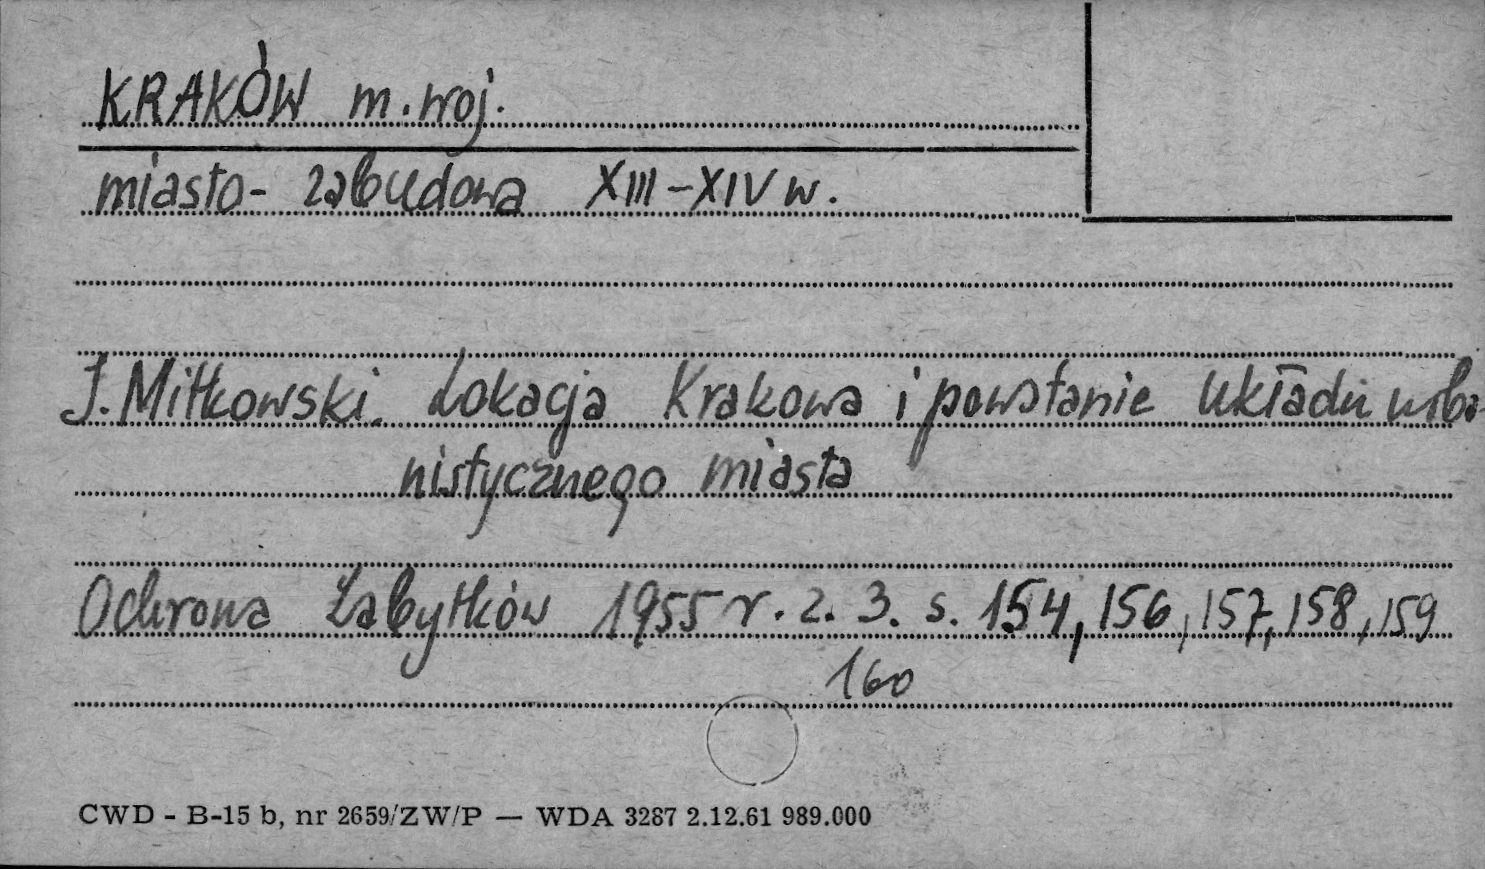 KRAKÓW m. woj.
miasto - zabudowa XIII – XIV w.
J. Mitkowski. Lokacja Krakowa i powstanie układu urba-
nistycznego miasta
Ochrona Zabytków 1955 r. z. 3. s. 154, 156, 157, 158, 159
160
CWD - B-15 b, nr 2659/ZW/P — WDA 3287 2.12.61 989.000